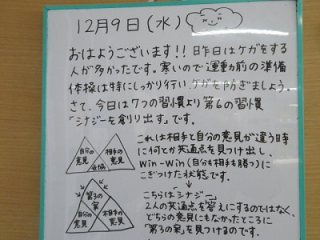 12月9日(水)
おはようございます!! 昨日はケガをする
人が多かったです。寒いので運動前の準備
体操は特にしっかり行い、ケガを防ぎましょう。
さて、今日は7つの習慣より 第6の習慣
『シナジーを創り出す』です。
自分の意見
相手の意見
これは相手と自分の意見が違う時
に何とか共通点を見つけ出し、
Win-Win(自分も相手も勝つ)に
こぎつけた状態です。
第3の案
自分の意見
相手の意見
こちらはシナジー。
2人の共通点を答えにするのではなく、
どちらの意見にもなかったところに
「第3の案」を見つけるのです。